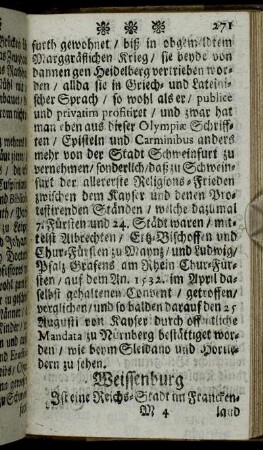 271
furth gewohnet / biß in obgemeldtem
Marggräflichen Krieg / sie beyde von
dannen gen Heidelberg vertrieben wor-
den / allda sie in Griech- und Lateini-
scher Sprach / so wohl als er / publice
und privatim profitiret / und zwar hat
man eben aus dieser Olympiæ Schriff-
ten / Episteln und Carminibus anders
mehr von der Stadt Schweinfurt zu
vernehmen / sonderlich / daß zu Schwein-
furt der allererste Religions-Frieden
zwischen dem Kayser und denen Pro-
testirenden Ständen / welche dazumal
7. Fürsten und 24. Städt waren / mit-
telst Albrechten / Ertz-Bischoffen und
Chur-Fürsten zu Mayntz / und Ludwig /
Pfaltz Grafens am Rhein Chur-Für-
sten / auf dem An. 1532. im April da-
selbst gehaltenen Convent / getroffen /
verglichen / und so balden darauf den 25
Augusti von Kayser durch öffentliche
Mandata zu Nürnberg bestättiget wor-
den / wie beym Sleidano und
dern zu sehen.
Weissenburg
Ist eine Reichs-Stadt im Francken-
M 4 land